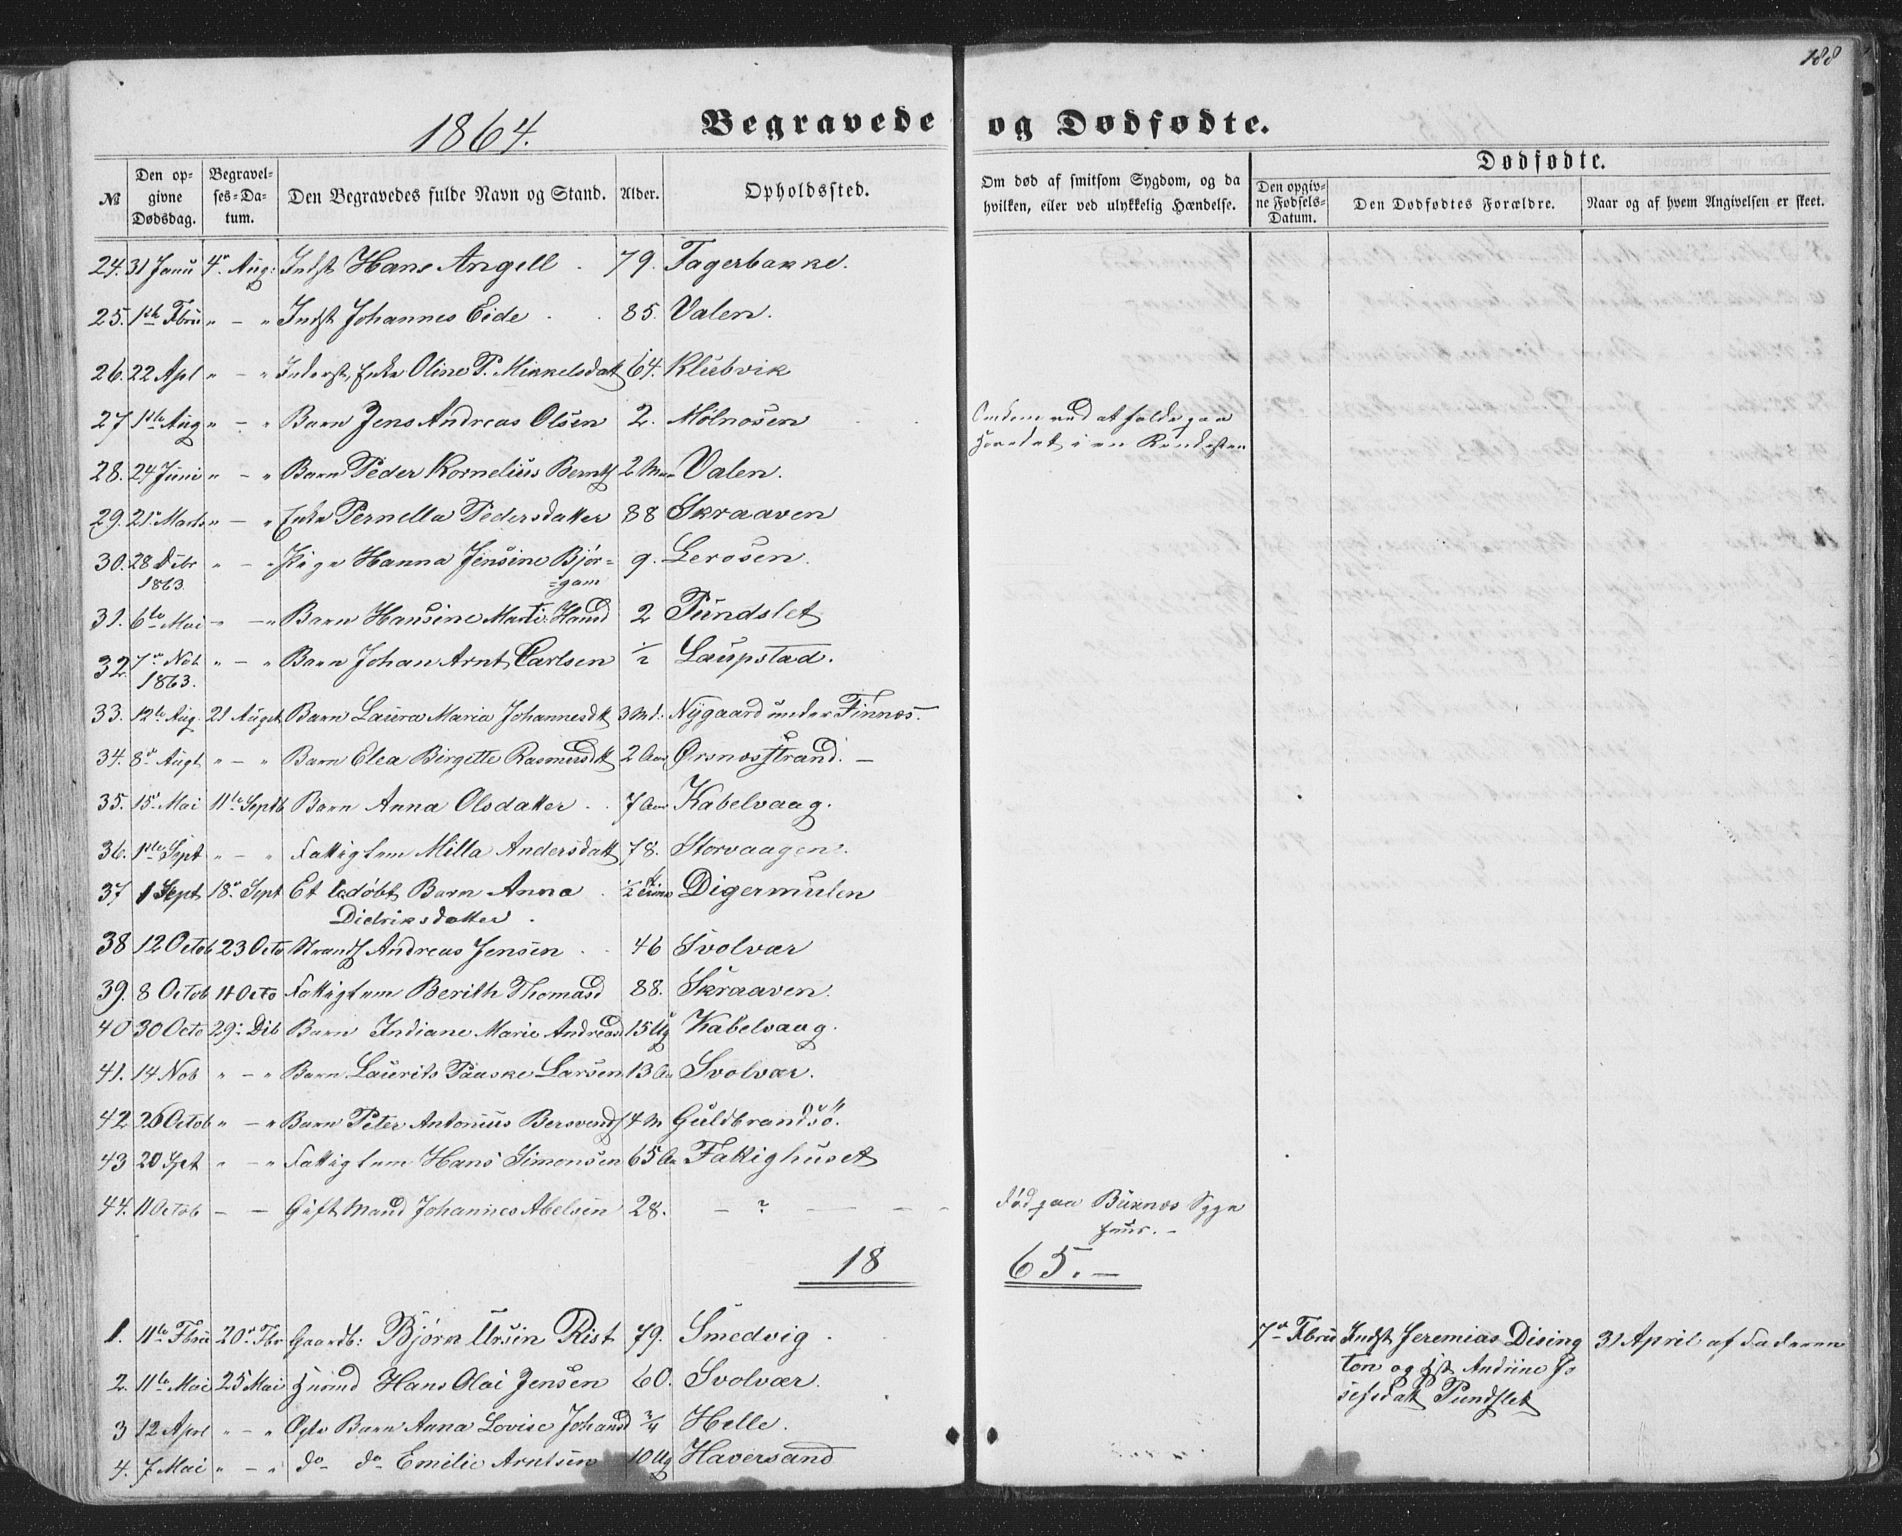 188
1864.
Begravede og Dødfødte.
№ Den opgivne Dødsdag. Begravelses-Datum. Den Begravedes fulde Navn og Stand. Alder. Opholdssted. Om død af smitsom Sygdom, og da hvilken, eller ved ulykkelig Hændelse. Dødfødte. Den opgivne Fødsels-Datum. Den Dødfødtes Forældre. Naar og af hvem Angivelsen er skeet.
24. 31 Janu 4de Aug: Indst Hans Angell 79. Fagerbakke.
25. 1ste Fbru " - " Indst Johannes Eide 85. Valen.
26. 22 Apl " - " Inderst, Enke Oline P. Mikkelsdat 64. Klubvik
27 1ste Aug " - " Barn Jens Andreas Olsen 2. Mølnosen Omkom ved at falde paa
Hovedet i en Rendesten
28. 24 Juni " - " Barn Peder Kornelius Bernts 2 Valen.
29. 21de Marts " - " Enke Pernella Pedersdatter 88 Skraaven
30. 28 Debr " - " Pige Hanna Jensine Bjør= 9. Lerosen.
1863. =gam
31. 6te Mai " - " Barn Hansine Hansd 2 Pundslet
32 7de Nob " - " Barn Johan Arnt Carlsen 1/2 Laupstad.
1863.
33. 12te Aug. 21 August Barn Laura Maria Johannesdt 3 Md. Nygaard under Finnes.
34. 8de Augt " - " Barn Elea Birgette Rasmusdt 2 Aar Ørsnesstrand. -
35. 15de Mai 11te Septb Barn Anna Olsdatter 7 Aar Kabelvaag.
36. 1ste Sept " - " Fattiglem Milla Andersdatt 78. Storvaagen.
37 1 Sept 18de Sept Et døbt Barn Anna 1/2 Digermulen
Didriksdatter.
38 12 Octob 23 Octo Strands Andreas Jensen 46 Svolvær
39. 8 Octob 11 Octo Fattiglem Berith Thomasd 88. Skraaven.
40 30 Octo 29: Dib Barn Indiane Marie Andreasd 15 Ug Kabelvaag.
41. 14 Nob " - " Barn Laurits Paaske Larsen 13 Aa Svolvær.
42 26 Octob " - " Barn Peter Antonius Bersvends 4 M Guldbrandsö.
43 20 Spt " - " Fattiglem Hans Simonsen 65 Aa Fattighuset
44. 11 Octob - - Gift Mand Johannes Abelsen 28. - ? - - - - Død paa Buxnes Syge
huus. -
18 65. -
1. 11te Fbru 20de Fbr Gaardb: Bjørn Ursin Rist 79. Smedvig. 7de Fbru Indst Jeremias Dising 31 April af Faderen
2. 11te Mai 25 Mai Huusmd Hans Olai Jensen 60. Svolvær. ton og Hst Andrine Jo
3 12 Aprl " - " Ægte Barn Anna Lovise Johansd 3/4 Helle. sefsdatt Pundslet
4. 7 Mai " - " do do Emilie Arntsen 10 Ug Haversand